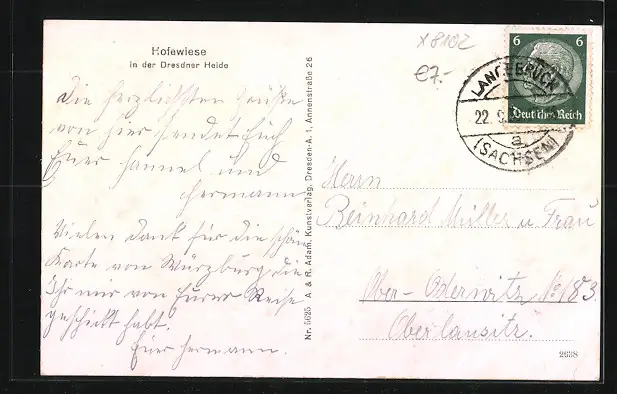 Hofewiese
in der Dresdner Heide
x 8102
€7.-
6 6
Deutsches Reich
LANGEBRÜCK
22. 9.
a
(SACHSEN)
Die herzlichsten Grüße
von hier sendet Euch
Euer Hannel und
Hermann
Vielen Dank für die schöne
Karte von Würzburg, die
Ihr mir von Eurer Reise
geschickt habt.
Euer Hermann.
Nr. 5625 A. & R. Adam, Kunstverlag, Dresden-A. 1, Annenstraße 26
Herrn
Reinhard Müller u Frau
Ober-Oderwitz No 183
Oberlausitz.
2638